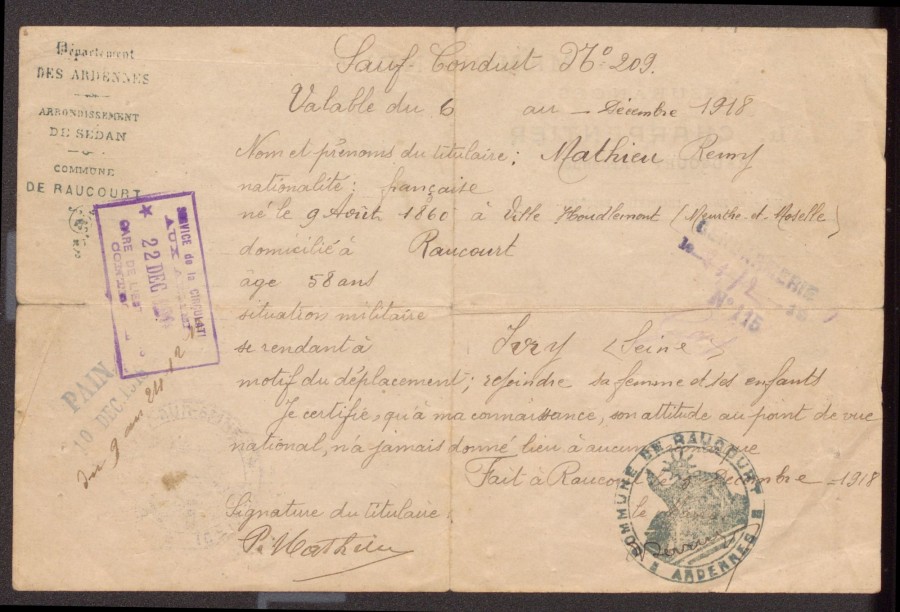 Département
DES ARDENNES
ARRONDISSEMENT
DE SEDAN
COMMUNE
DE RAUCOURT
Sauf-Conduit No 209.
Valable du 6 au - Décembre 1918
Nom et prénoms du titulaire; Mathieu Remy
nationalité; française
né le 9 Août 1860 à Ville Houdlemont (Meurthe-et-Moselle)
domicilié à Raucourt
âge 58 ans
situation militaire
se rendant à Ivry (Seine)
motif du déplacement; rejoindre sa femme et ses enfants
Je certifie, qu'à ma connaissance, son attitude au point de vue
national, n'a jamais donné lieu à aucune
Fait à Raucourt Décembre - 1918
le
Signature du titulaire:
P. Mathieu
SERVICE de la CIRCULATI
AUX
22 DEC
GARE DE L'EST
CONTR
PAIN
10 DEC 1918
du 9 au 24.12
N° 115
COMMUNE DE RAUCOURT
ARDENNES